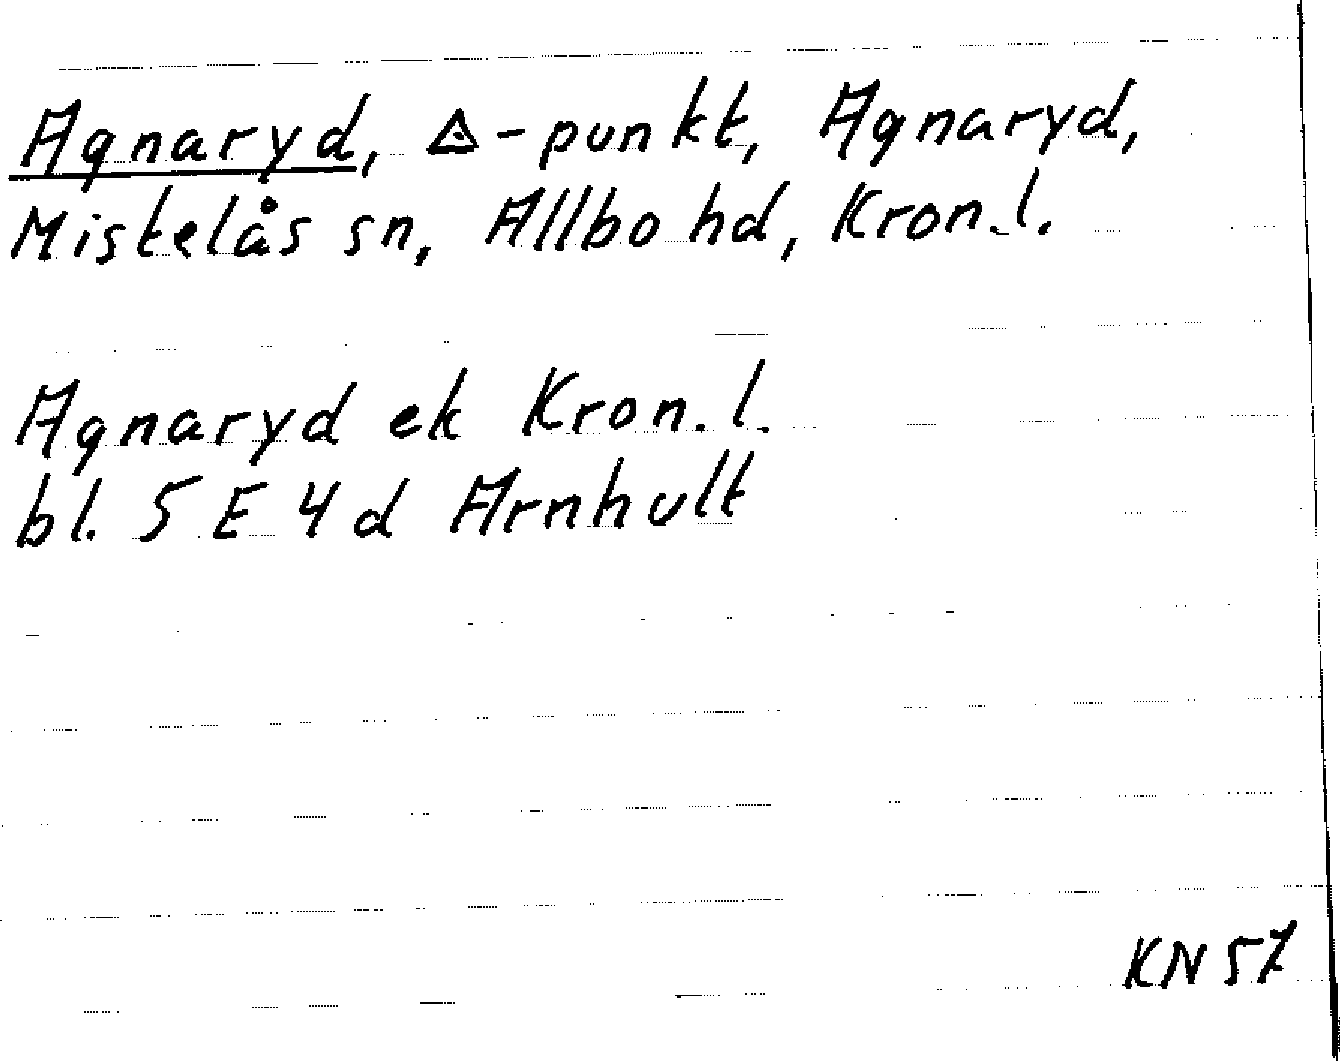 Agnaryd, △-punkt, Agnaryd,
Mistelås sn, Allbo hd, Kron.l.
Agnaryd ek Kron.l.
bl. 5 E 4 d Arnhult
KN 57